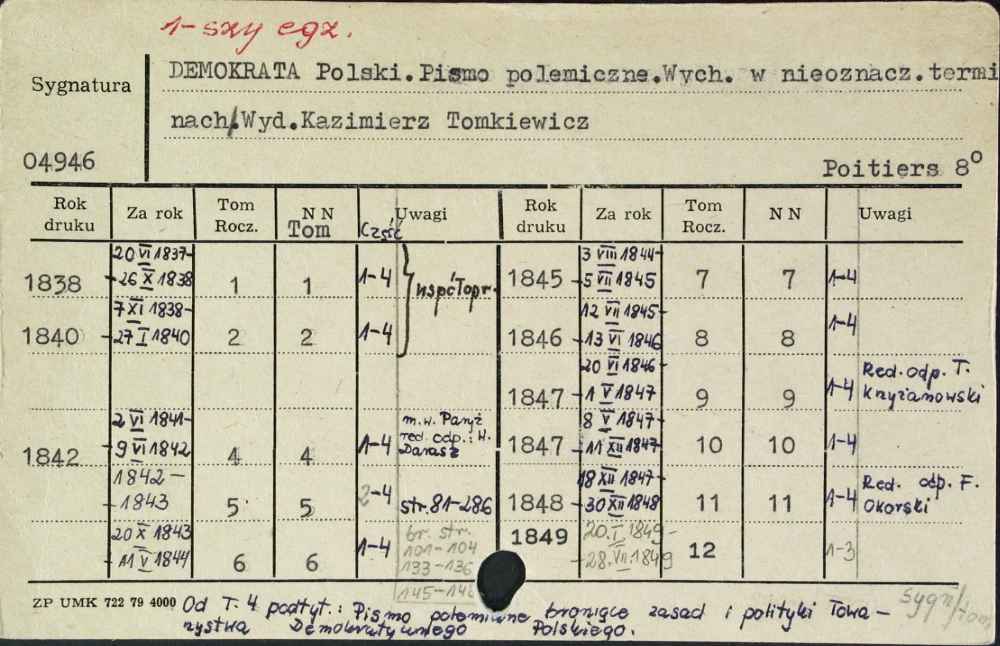 1-szy egz.
Sygnatura
DEMOKRATA Polski.Pismo polemiczne.Wych. w nieoznacz.termi
nach/.Wyd.Kazimierz Tomkiewicz
04946
Poitiers 8°
Rok druku Za rok Tom Rocz. NN Tom Część Uwagi Rok druku Za rok Tom Rocz. NN Uwagi
20 VI 1837-
1838 -26 X 1838 1 1 1-4 współopr.
7 XI 1838-
1840 -27 I 1840 2 2 1-4
2 VI 1841- m.w. Paryż
1842 -9 VI 1842 4 4 1-4 red. odp.: W. Darasz
1842-
-1843 5 5 2-4 str. 81-286
20 X 1843 br. str.
-11 V 1844 6 6 1-4 101-104
133-136
145-146
3 VIII 1844-
1845 -5 VII 1845 7 7 1-4
12 VII 1845-
1846 -13 VI 1846 8 8 1-4
20 VI 1846-
1847 -1 V 1847 9 9 1-4 Red. odp. T. Krzyżanowski
8 V 1847-
1847 -11 XII 1847 10 10 1-4
18 XII 1847-
1848 -30 XII 1848 11 11 1-4 Red. odp. F. Okorski
1849 20.I 1849-
-28.VII.1849 12 1-3
ZP UMK 722 79 4000 Od T. 4 podtyt.: Pismo polemiczne broniące zasad i polityki Towa-
rzystwa Demokratycznego Polskiego.